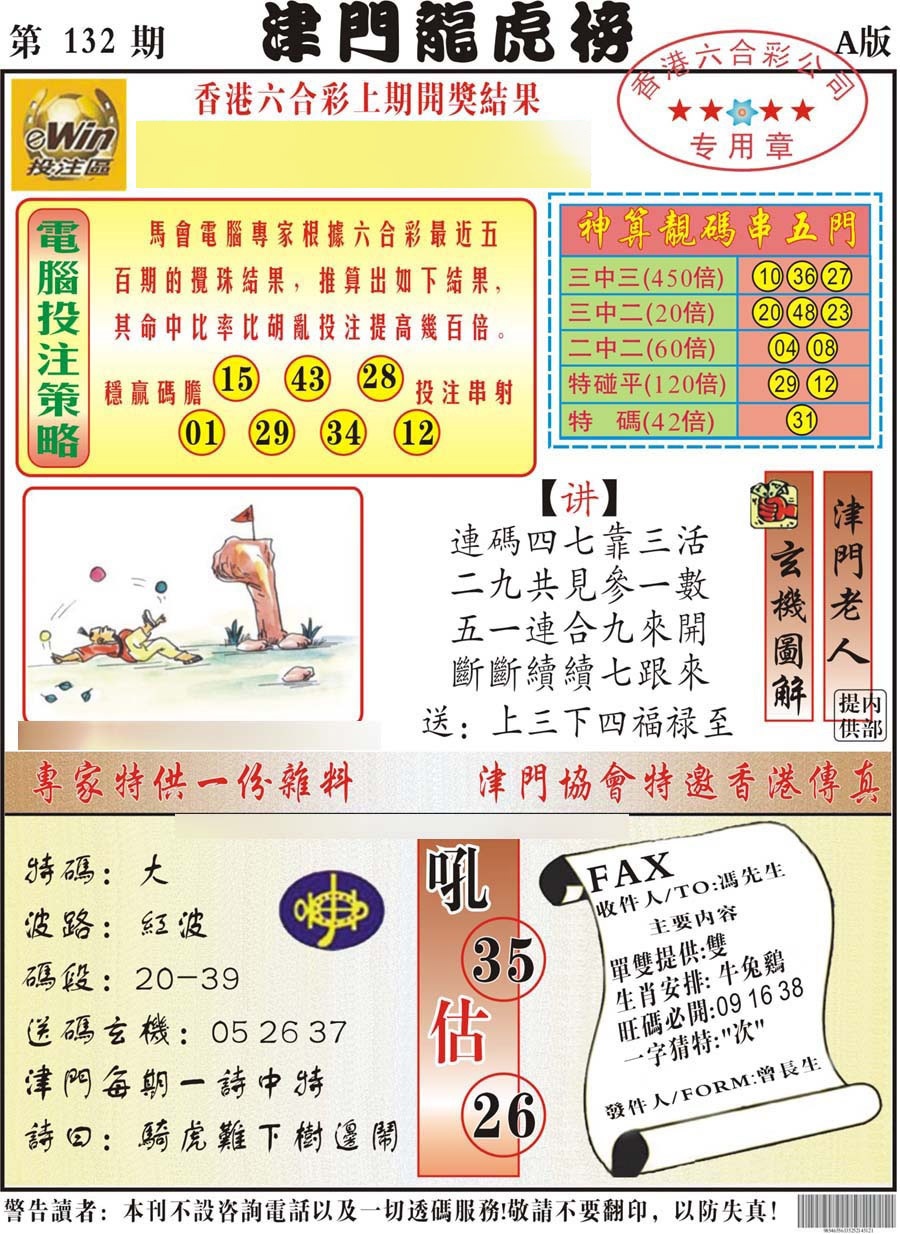 第 132 期
津門龍虎榜
A版
eWin
投注區
香港六合彩上期開獎結果
香港六合彩公司
专用章
電腦投注策略
馬會電腦專家根據六合彩最近五
百期的攪珠結果，推算出如下結果，
其命中比率比胡亂投注提高幾百倍。
穩贏碼膽 15 43 28 投注串射
01 29 34 12
神算靚碼串五門
三中三(450倍) 10 36 27
三中二(20倍) 20 48 23
二中二(60倍) 04 08
特碰平(120倍) 29 12
特 碼(42倍) 31
【讲】
連碼四七靠三活
二九共見參一數
五一連合九來開
斷斷續續七跟來
送：上三下四福禄至
玄機圖解
津門老人
内部
提供
專家特供一份雜料
津門協會特邀香港傳真
特碼：大
波路：紅波
碼段：20-39
送碼玄機：05 26 37
津門每期一詩中特
詩曰：騎虎難下樹邊鬧
吼
35
估
26
FAX
收件人/TO:馮先生
主要内容
單雙提供:雙
生肖安排: 牛兔鷄
旺碼必開:09 16 38
一字猜特:"次"
發件人/FORM:曾長生
警告讀者：本刊不設咨詢電話以及一切透碼服務!敬請不要翻印，以防失真！